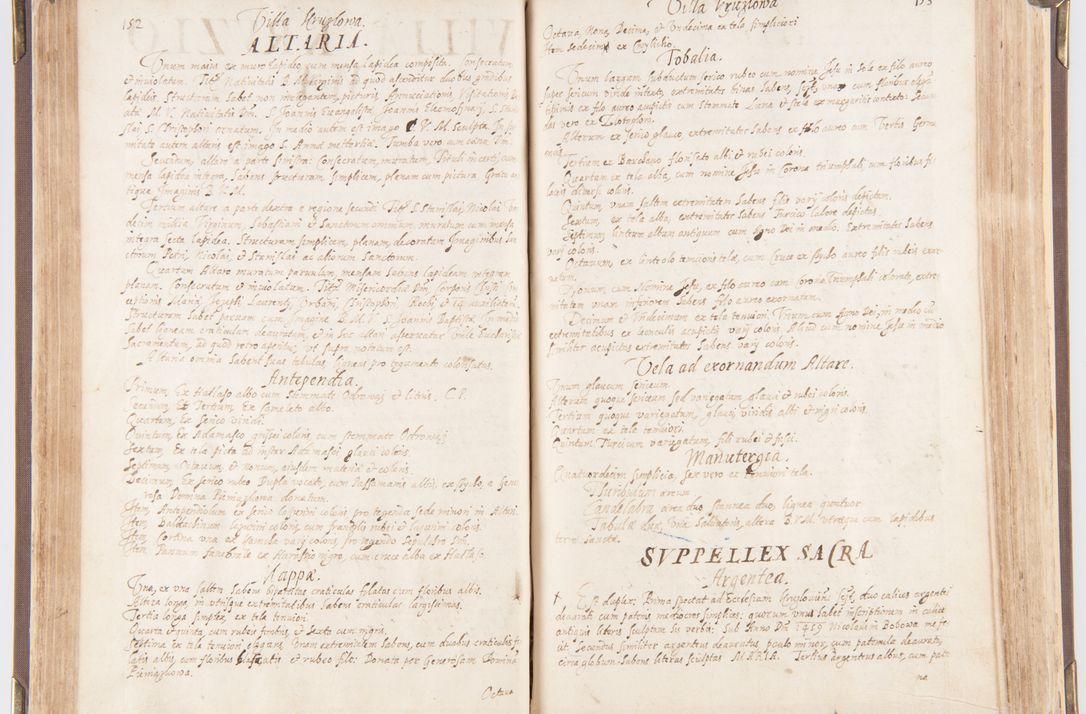 152 Villa Kruzlowa.
ALTARIA.
Unum maius ex muro lapideo cum mensa lapidea composita. Consecratum
et inviolatum. Titt. Nativitatis B. M. Virginis ad quod ascenditur duobus gradibus
lapideis. Structuram habet non inelegantem, picturis, Annunciationis, Visitationis
M. V. Nativitatis Dni. S. Joannis Evangelistae, Joannis Eleemosynarij, S.
S. Christophori ornatam. In medio autem est imago B. V. M. Sculpta. In
mitate autem altaris est imago S. Annae mettertiae. Tumba vero cum caena Dni.
Secundum, altare a parte sinistra: Consecratum, muratum, Tituli incerti, cum
mensa lapidea integra, habens structuram simplicem, planam cum pictura
tiqua Imaginis B. V. M.
Tertium altare a parte dextra e regione secundi Titt. S. Stanislai, Nicolai
decim millia Virginum, Sebastiani et Sanctorum omnium, muratum cum mensa
integra lapidea. Structuram simplicem, planam, decoratam Imaginibus
ctorum Petri, Nicolai, et Stanislai ac aliorum Sanctorum.
Quartum Altare muratum parvulum, mensam habens lapideam integram
planam. Consecratum et inviolatum. Titt. Misericordiae Dni, Corporis Christi
Mariae, Josephi Laurentij Urbani, Christophori, Rochi et
Structuram habet parvam cum Imagine B. M. V. S. Joannis Baptistae. In medio
habet ligneam craticulam deauratam, et in hoc altari asservatur
Sacramentum, ad quod retro aperitur, uti supra notatum est.
Altaria omnia habent suas tabulas ligneas pro tegumento coloratas.
Antependia.
Primum, Ex Hatlaso albo cum Stemmate Odrowąz et litris. C. P.
Secundum, et Tertium, Ex Cameleto albo.
Quartum, Ex Serico viridi.
Quintum, Ex Adamasco grisei coloris, cum stemmate Odrowąz
Sextum, Ex tela picta ad instar Adamasci glauci coloris.
Septimum, Octavum, et Nonum, eiusdem materiae et coloris.
Decimum, Ex Serico rubeo Dupla vocato, cum Passamanis albis, ex a Gene
rosa Domina Pieniązkowa donatum.
Item, Antependiolum ex Serico coloris pro tegenda sede minori in Altari.
Item, Baldachinum coloris, cum frangiis rubei et coloris.
Item, Cortina una ex varij coloris, pro tegendo Sepulchro Dni.
Item, Pannum funebrale ex nigro, cum cruce alba ex Hatlaso.
Mappae.
Una, ex una saltem habens craticulas cum floribus albis.
Altera longa, in utrisque extremitatibus habens craticulas largissimas.
Tertia longa simplex, ex tela tenuiori.
Quarta et quinta, cum rubeis et Sexta cum nigris.
Septima ex tela tenuiori elegans, Oram extremitatem habens, cum duabus craticulis
latis albis, cum floribus et rubeo filo: Donata per Generosam Dominam
Pieniązkowa.
Octava
Villa Kruzlowa 153
Octava, Nona, Decima, et Undecima ex tela simpliciori
Item sedecim ex
Tobalia.
Unum largum subductum serico rubeo cum nomine Jesu in Sole ex filo aureo
super sericum viride intexto, extremitates binas habens, una cum floribus
ex filo aureo auspicto cum Stemmate Luna et Stella ex margaritis contexto: Secun
das vero ex
Alterum ex serico glauco, extremitates habens ex filo aureo cum
Tertium ex albi et rubei coloris.
Quartum ex tela alba, cum nomine Jesu in Corona triumphali cum floribus
diversi coloris.
Quintum, unam saltem extremitatem habens filis varij coloris depictam.
Sextum, ex tela alba, extremitates habens Turcico labore depictas.
Septimum, linteum album antiquum cum Agno Dei in medio. Extremitates habens
varij coloris.
Octavum, ex linteolo tenuioris telae, cum Cruce ex aureo filis rubeis exor
natum.
Nonum, cum Nomine Jesu, ex filo aureo cum Corona Triumphali colorata, extre
mitatem unam inferiorem habens filo aureo exornatam.
Decimum et Undecimum ex tela tenuiori. Unum cum Agno Dei, in medio cum
extremitatibus ex leunculis acupictis varij coloris. Aliud cum nomine Jesu in medio
similiter acupictus extremitates habens varij coloris.
Vela ad exornandum Altare.
Unum glaucum sericeum.
Alterum quoque sericeum sed variegatum glauci et rubei coloris.
Tertium quoque variegatum, glauci viridis albi et nigri coloris.
Quartum ex tela tenuiori.
Quintum Turcicum variegatum, filis rubei et fusci.
Manutergia.
Quatuordecim simplicia, sex vero ex tenuiori tela.
Thuribulum aereum
Candelabra aerea duo stannea duo, lignea quatuor
Tabulae duae, una Salvatoris, altera B. V. M. utraque cum lapidibus
terrae Sanctae.
SVPPELLEX SACRA
Argentea.
† Est duplex: Prima spectat ad Ecclesiam Kruzloviensem, duo calices argentei
deaurati cum patenis mediocres simplices, quorum unus habet inscriptionem in calice
antiquis literis sculptam his verbis: Sub Anno Dni 1459 Nicolaus in Bobowa me fe
cit. Secundus similiter argenteus deauratus, paulo minor, cum patenula deaurata,
circa globum habens literas sculptas MARIA. Tertius argenteus albus, cum pate
na